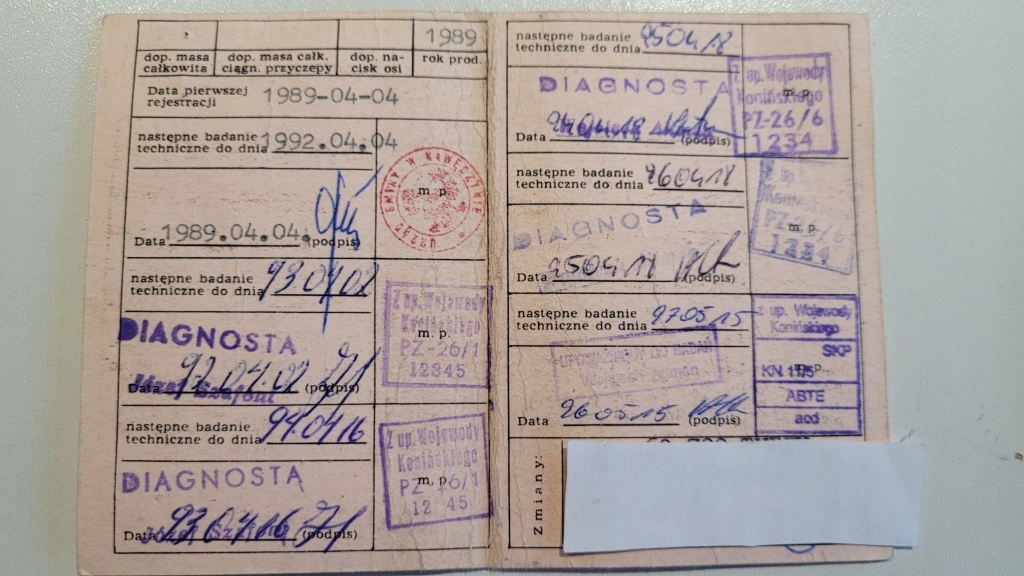 1989
dop. masa całkowita
dop. masa całk. ciągn. przyczepy
dop. nacisk osi
rok prod.
Data pierwszej rejestracji 1989-04-04
następne badanie techniczne do dnia 1992.04.04
URZĄD GMINY W KAWĘCZYNIE
m. p.
Data 1989.04.04. (podpis)
następne badanie techniczne do dnia 93.04.02
Z up. Wojewody
Konińskiego
m. p.
PZ-26/1
12345
DIAGNOSTA
Data 92.04.02 (podpis)
następne badanie techniczne do dnia 94.04.16
Z up. Wojewody
Konińskiego
m. p.
PZ-26/1
12 45
DIAGNOSTA
Data 93.04.16 (podpis)
następne badanie techniczne do dnia 950418
DIAGNOSTA
Z up. Wojewody
Konińskiego
m. p.
PZ-26/6
1234
Data 940418 (podpis)
następne badanie techniczne do dnia 960418
DIAGNOSTA
Z up.
m. p.
PZ-26/6
1234
Data 950418 (podpis)
następne badanie techniczne do dnia 970515
UPOWAŻNIONY DO BADAŃ
Wojciech
z up. Wojewody
Konińskiego
SKP
KN 11/5
m. p.
ABTE
Data 960515 (podpis)
Zmiany: